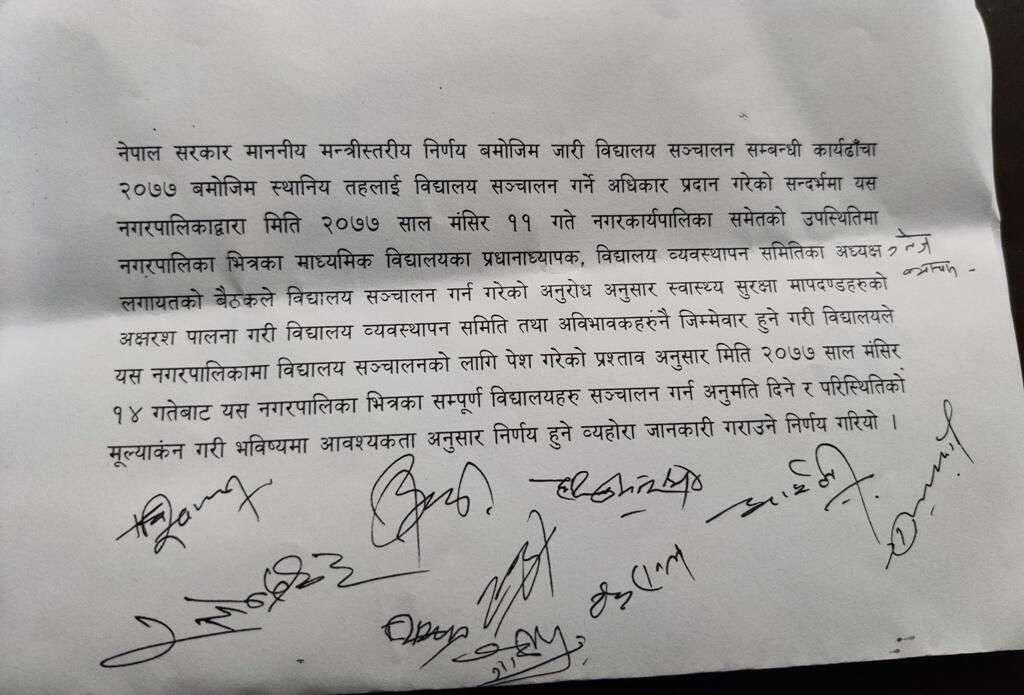 नेपाल सरकार माननीय मन्त्रीस्तरीय निर्णय बमोजिम जारी विद्यालय सञ्चालन सम्बन्धी कार्यढाँचा
२०७७ बमोजिम स्थानिय तहलाई विद्यालय सञ्चालन गर्ने अधिकार प्रदान गरेको सन्दर्भमा यस
नगरपालिकाद्वारा मिति २०७७ साल मंसिर ११ गते नगरकार्यपालिका समेतको उपस्थितिमा
नगरपालिका भित्रका माध्यमिक विद्यालयका प्रधानाध्यापक, विद्यालय व्यवस्थापन समितिका अध्यक्ष
लगायतको बैठकले विद्यालय सञ्चालन गर्न गरेको अनुरोध अनुसार स्वास्थ्य सुरक्षा मापदण्डहरुको
अक्षरश पालना गरी विद्यालय व्यवस्थापन समिति तथा अविभावकहरुनै जिम्मेवार हुने गरी विद्यालयले
यस नगरपालिकामा विद्यालय सञ्चालनको लागि पेश गरेको प्रश्ताव अनुसार मिति २०७७ साल मंसिर
१४ गतेबाट यस नगरपालिका भित्रका सम्पूर्ण विद्यालयहरु सञ्चालन गर्न अनुमति दिने र परिस्थितिको
मूल्याकंन गरी भविष्यमा आवश्यकता अनुसार निर्णय हुने व्यहोरा जानकारी गराउने निर्णय गरियो ।